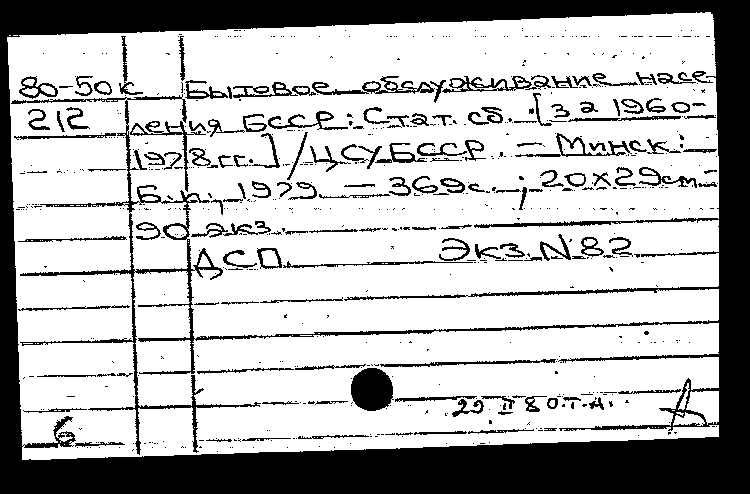 80-50к Бытовое обслуживание насе-
212 ления БССР: Стат. сб. [за 1960-
1978 гг.] / ЦСУ БССР. – Минск:
Б.и., 1979. – 369с. ; 20х29см.-
90 экз.
ДСП. Экз. N 82
29 II 80 Т.А.
6